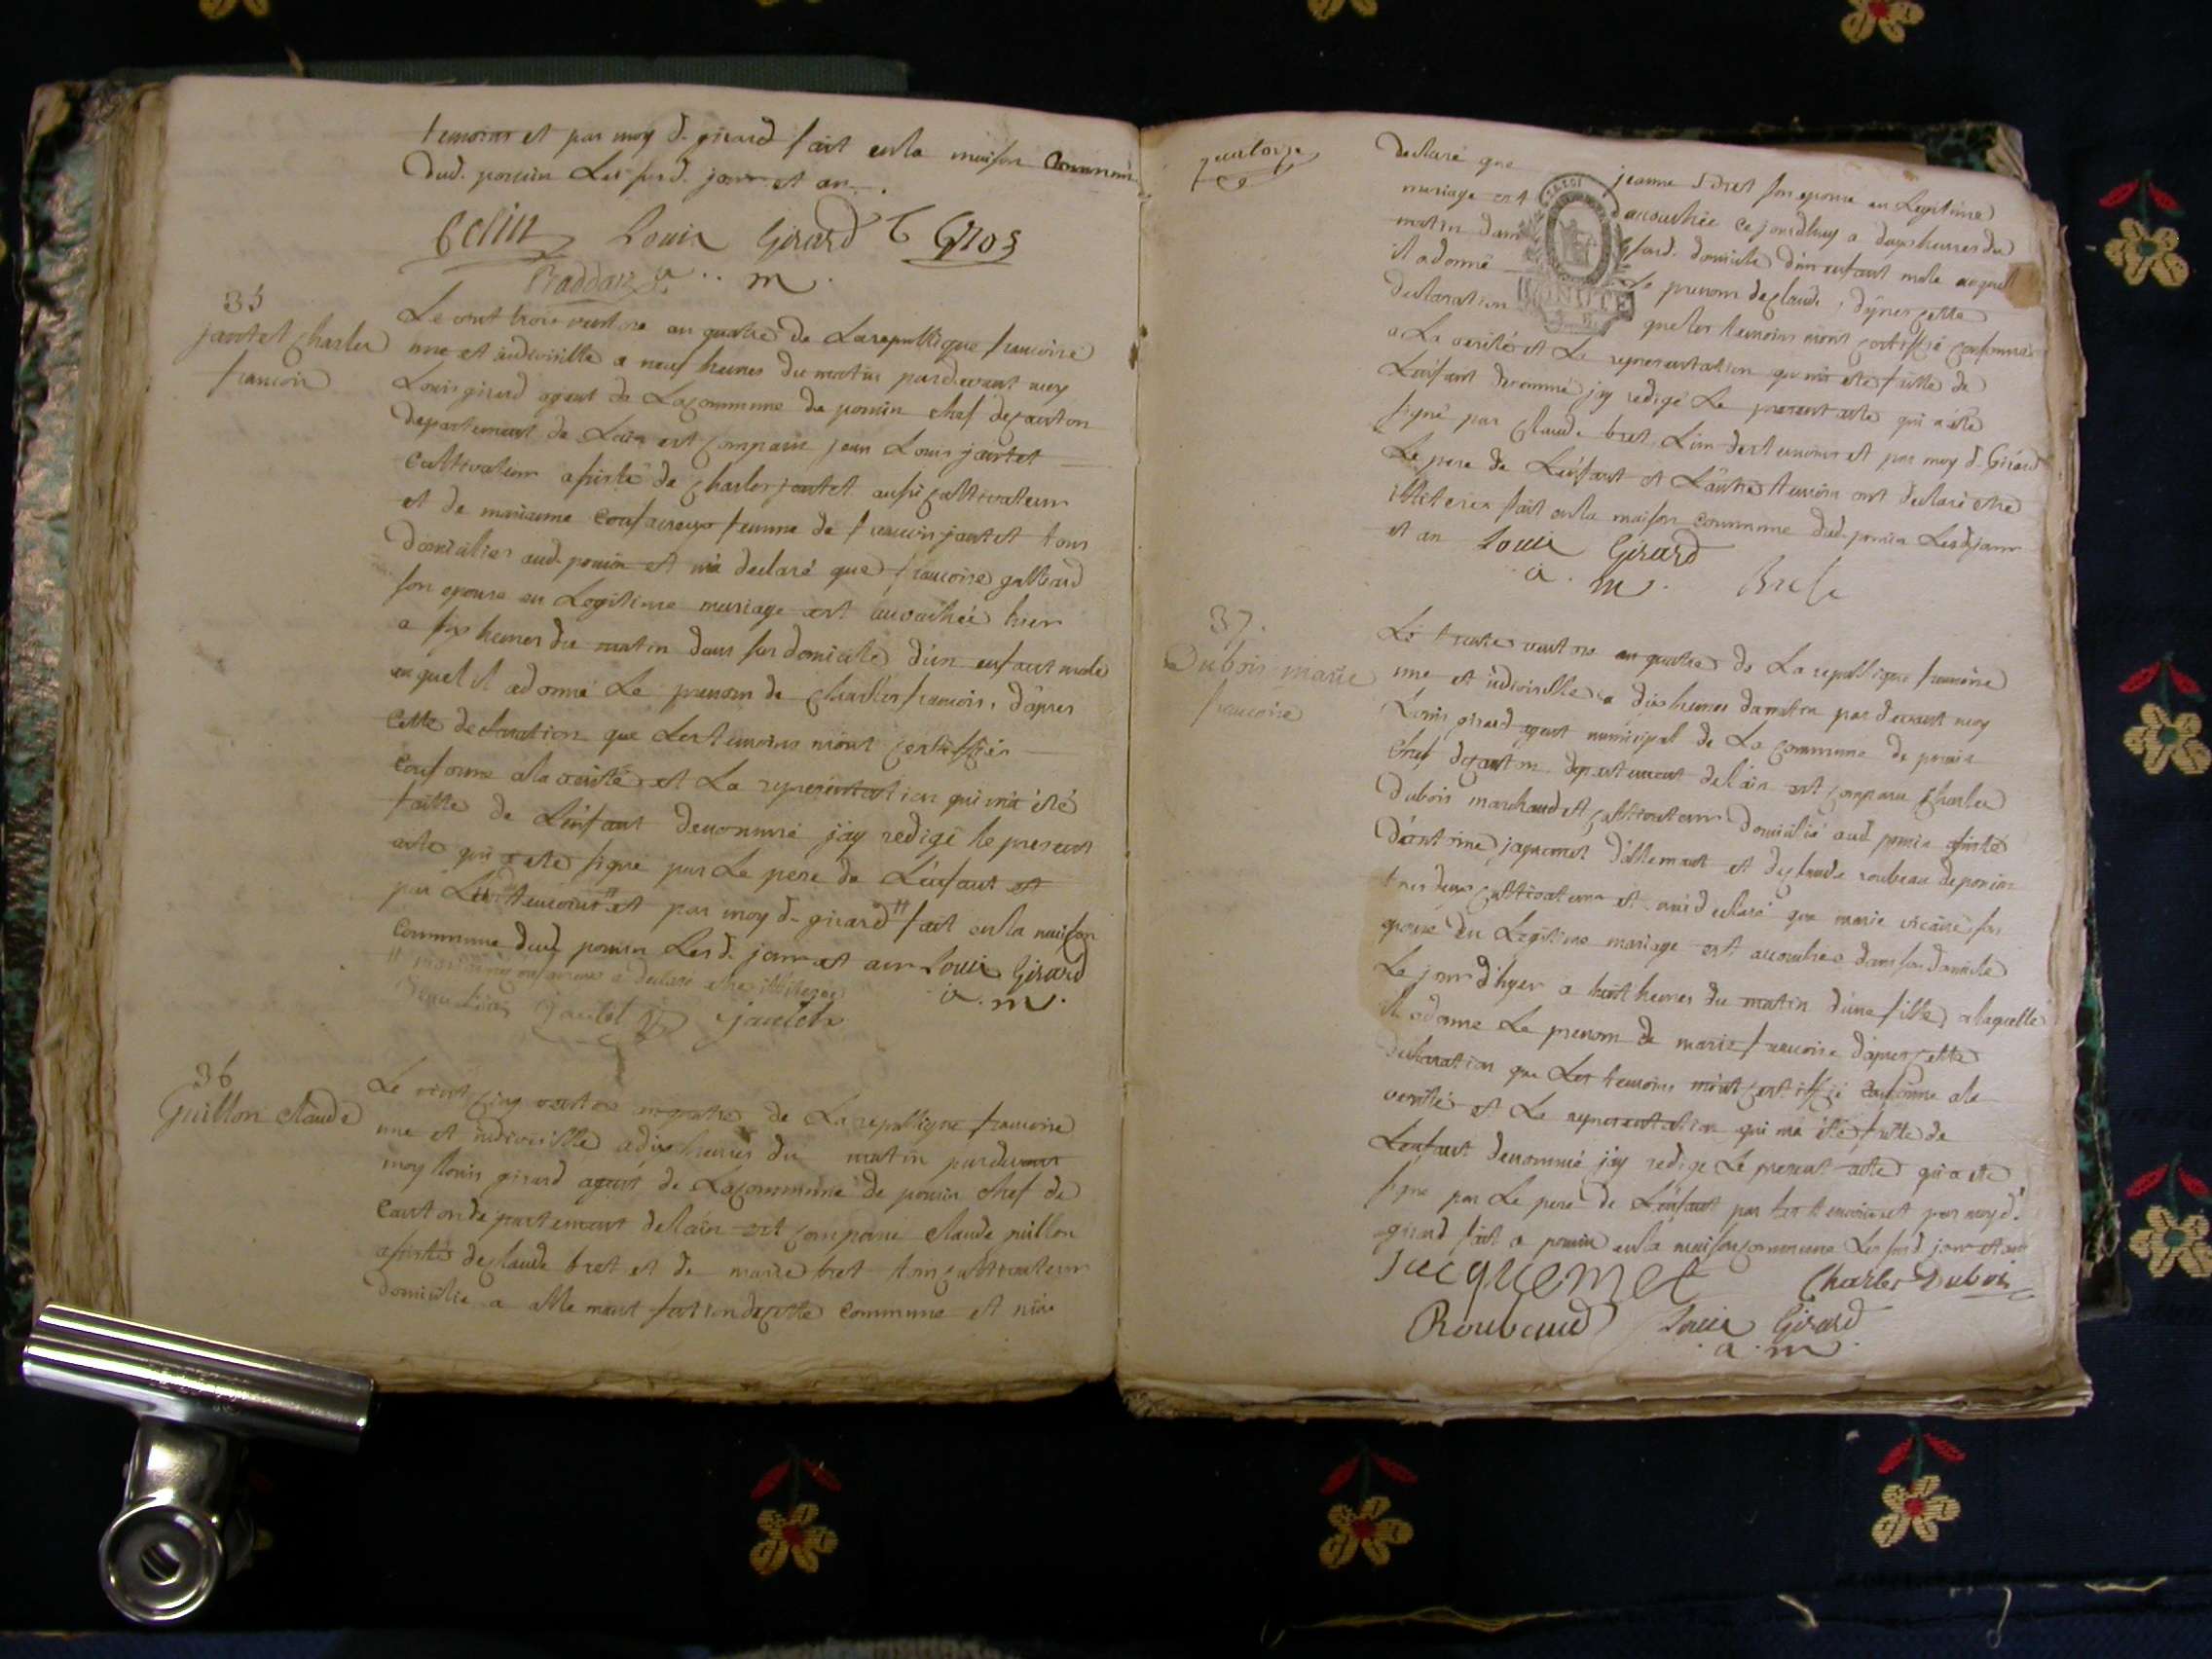 temoins et par moy d. girard fait en la maison Commune
dud. poncin Les susd. jour et an.
Colin Louis Girard
a. m.
35
jantet Charles
francois
Le vent trois ventose an quatre de La republique francoise
une et indivisille a neuf heures du matin pardevant moy
Louis girard agent de La commune de poncin chef de canton
departement de Lain est comparu jean Louis jantet
Cultivateur assisté de Charles jantet aussi cultivateur
et de marianne femme de francois jantet tous
domicilies aud. poncin et m'a declaré que francoise
son epouse en Legitime mariage est accouchée hier
a six heures du matin dans son domicile d'un enfant male
auquel il a donné Le prenom de Charles francois, d'apres
Cette declaration que Les temoins m'ont certiffiés
Conforme a la verité et La representation qui m'a été
faitte de L'enfant denommé j'ay redigé le present
acte qui a ete signé par Le pere de L'enfant et
par temoins et par moy d. girard fait en la maison
Commune dud poncin Les d. jour et an Louis Girard
a declaré etre illiteree a. m.
jantet jantet
36
Guillon Claude
Le vint cinq ventose an quatre de La republique francoise
une et indivisille a dix heures du matin pardevant
moy Louis girard agent de La commune de poncin chef de
Canton departement de l'ain est comparu Claude guillon
assisté de Claude bret et de marie bret tous cultivateurs
domicilie a allement section de cette commune et m'a
quatorze
declaré que jeanne son epouse en Legitime
mariage est accouchée ce jourdhuy a deux heures du
matin dans sond. domicile d'un enfant male auquel
il a donné le prenom de Claude, d'apres cette
declaration que les temoins m'ont certiffié conforme
a La verité et La representation qui m'a ete faitte de
L'enfant denommé j'ay redigé Le present acte qui a été
signé par Claude bret L'un des temoins et par moy d. Girard
Le pere de L'enfant et L'autre temoin ont declaré etre
illiteres fait en la maison commune dud. poncin Lesd jour
et an Louis Girard
a. m.
37.
Dubois marie
francoise
Le trente ventose an quatre de La republique francoise
une et indivisille a dix heures du matin pardevant moy
Louis girard agent municipal de La commune de poncin
Chef de canton departement de l'ain est comparu Charles
Dubois marchand et cultivateur domicilié aud poncin assisté
d'antoine jaquemet d'allement et de Claude roubeau de poncin
tous deux cultivateurs et m'a declaré que marie vicaire son
epouse en Legitime mariage est accouchée dans son domicile
Le jour d'hyer a huit heures du matin d'une fille a laquelle
il a donne Le prenom de marie francoise d'apres cette
declaration que Les temoins m'ont certiffié conforme a la
verité et La representation qui m'a été faitte de
L'enfant denommé j'ay redigé Le present acte qui a ete
signé par Le pere de L'enfant par Les temoins et par moy d.
girard fait a poncin en la maison commune Les susd jour et an
Jacquemet Charles Dubois
Roubaud Louis Girard
a. m.